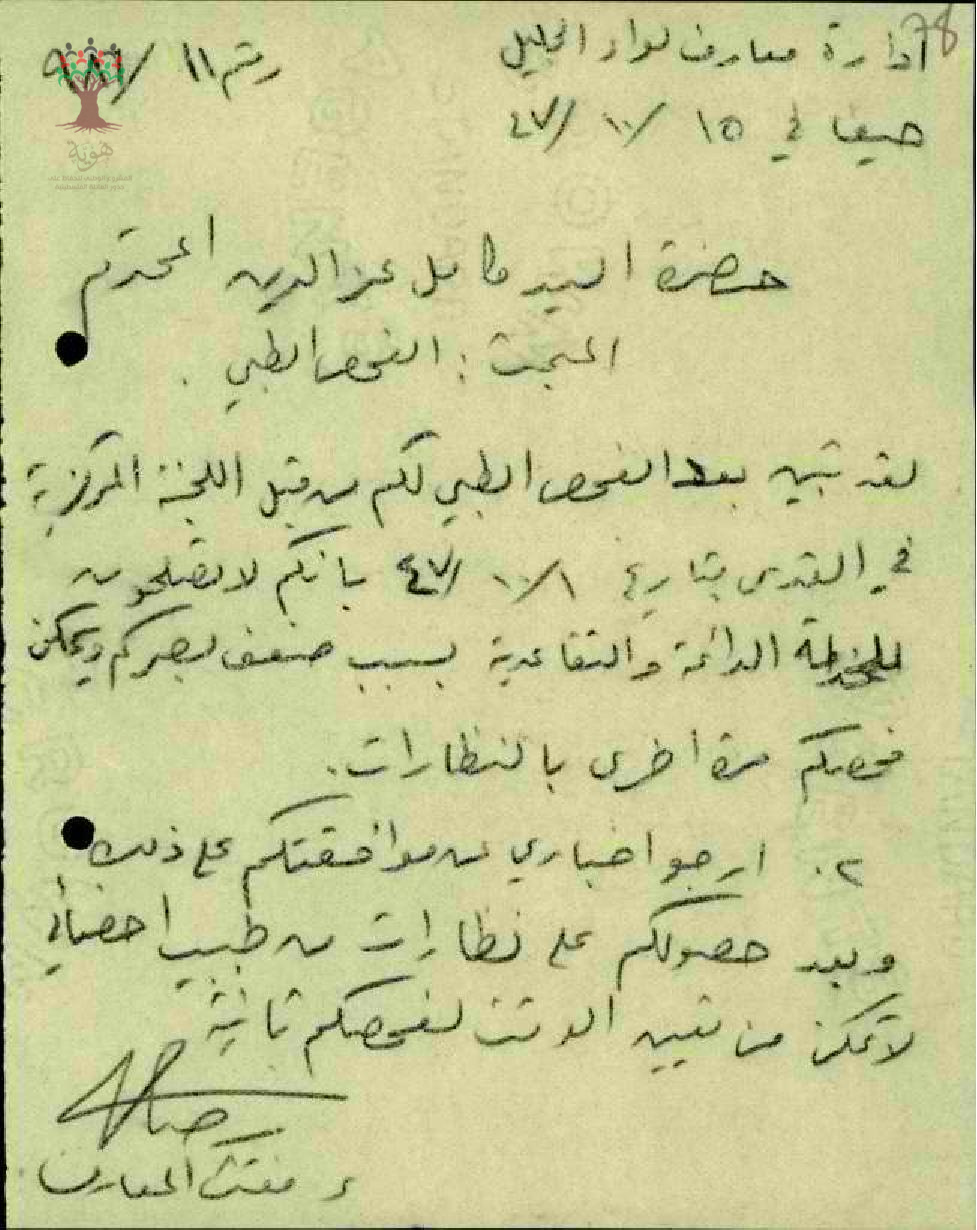 78
ادارة معارف لواء الجليل
رقم ١١/
حيفا في ١٥/١٠/٤٧
هوية
حضرة السيد كامل عز الدين المحترم
المبحث : الفحص الطبي .
لقد تبين بعد الفحص الطبي لكم من قبل اللجنة المركزية
في القدس بتاريخ ١/١٠/٤٧ بانكم لا تصلحون
للخدمة الدائمة والتقاعدية بسبب ضعف بصركم ويمكن
فحصكم مرة اخرى بالنظارات.
٢. ارجو اخباري عن موافقتكم على ذلك
وبعد حصولكم على نظارات من طبيب اخصائي
لاتمكن من تعيين الوقت لفحصكم ثانية
ء مفتش المعارف